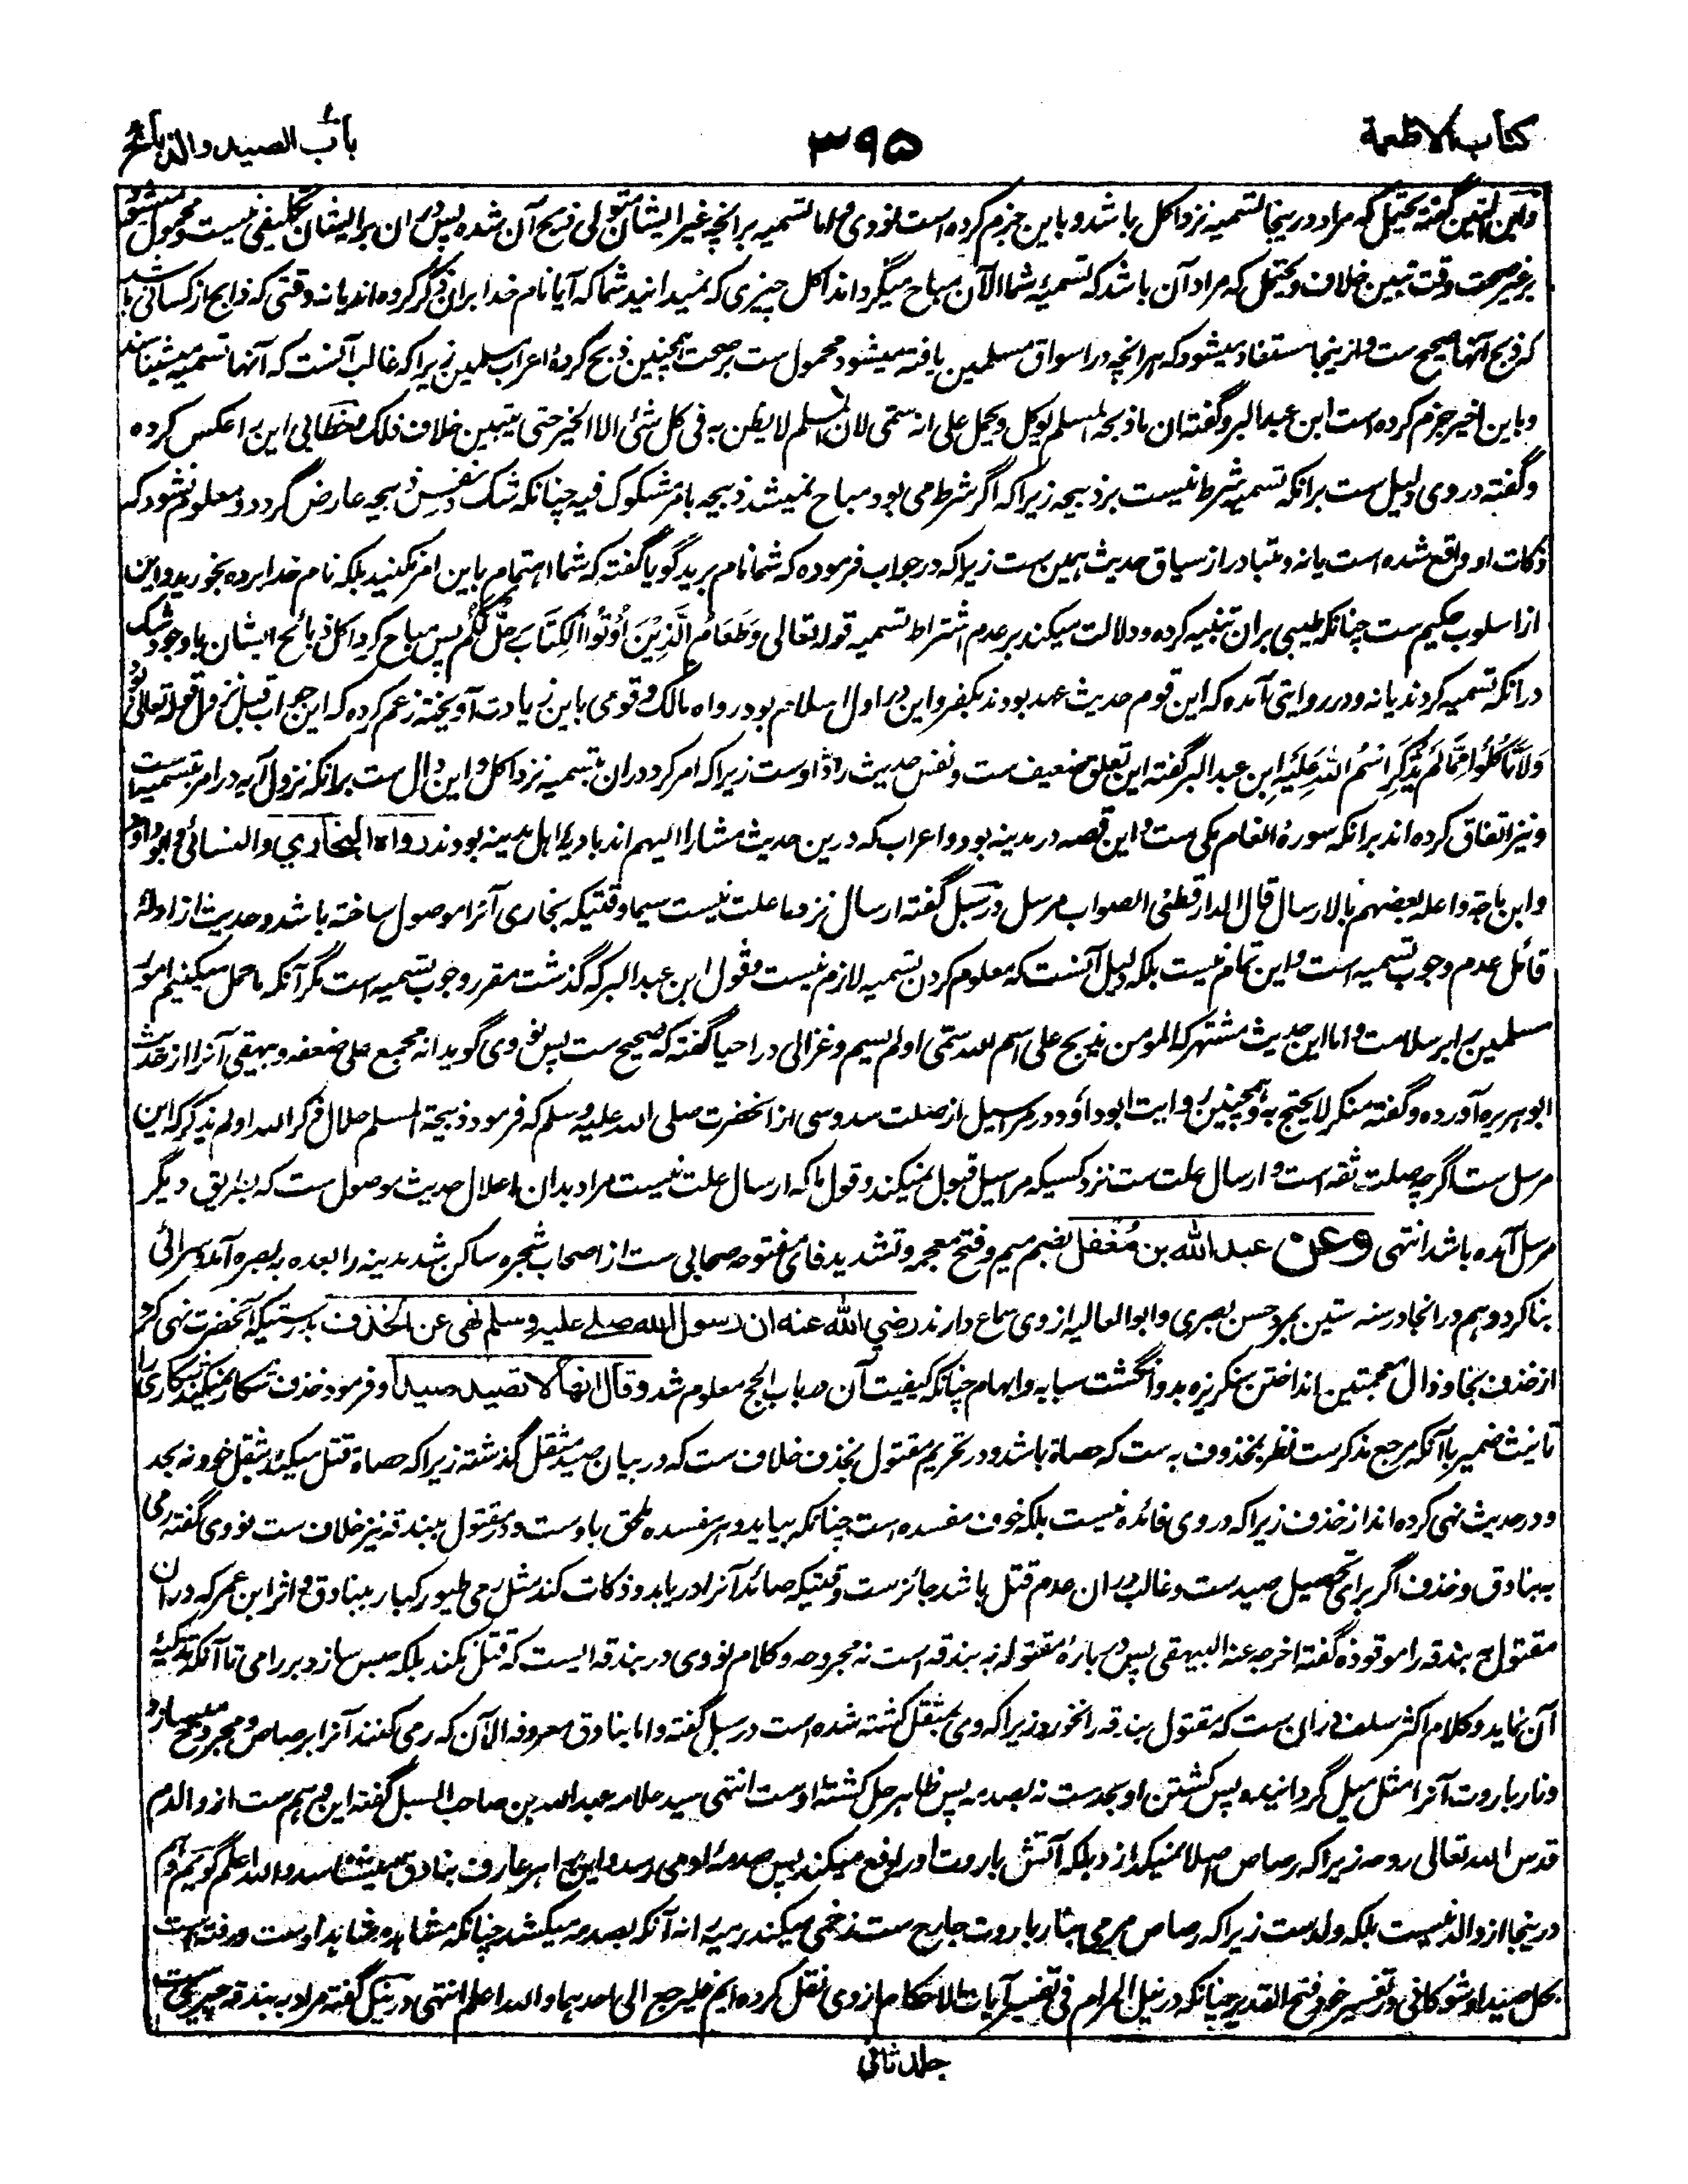 کتاب الاطعمة
۳۹۵
باب الصید والذبائح
وابن التین گفته یحتمل که مراد درینجا تسمیه نزد اکل باشد و باین جزم کرده است نووی و اما تسمیه بر آنچه غیر ایشان متولی ذبح آن شده پس دران بر ایشان تکلیفی نیست و محمول نمیشود
بر غیر صحت وقت تبین خلاف و یحتمل که مراد آن باشد که تسمیهٔ شما الآن مباح میگرداند اکل چیزی که نمیدانید شما که آیا نام خدا بران ذکر کرده اند یا نه وقتی که ذابح از کسانی باشد
که ذبح آنها صحیح ست و ازینجا مستفاد میشود که هر آنچه در اسواق مسلمین یافته میشود محمول ست بر صحت همچنین ذبح کردهٔ اعراب مسلمین زیرا که غالب آنست که آنها تسمیه میشناسند
و باین اخیر جزم کرده است ابن عبدالبر و گفته ان ما ذبحه المسلم یوکل و یحمل علی انه سمّی لان المسلم لا یظن به فی کل شئ الا الخیر حتی یتبین خلاف ذلک و خطابی این را عکس کرده
و گفته در وی دلیل ست برانکه تسمیه شرط نیست بر ذبیحه زیرا که اگر شرط می بود مباح نمیشد ذبیحه بامر مشکوک فیه چنانکه شک در نفس ذبیحه عارض گردد و معلوم نشود که
ذکات او واقع شده است یا نه و متبادر از سیاق حدیث همین ست زیرا که در جواب فرموده که شما نام برید گویا گفته که شما اهتمام باین امر نکنید بلکه نام خدا برده بخورید و این
از اسلوب حکیم ست چنانکه طیبی بران تنبیه کرده و دلالت میکند بر عدم اشتراط تسمیه قوله تعالی وَطَعَامُ الَّذِیْنَ اُوْتُوا الْکِتَابَ حِلٌّ لَّکُمْ پس مباح کرد اکل ذبائح ایشان با وجود شک
درانکه تسمیه کردند یا نه و در روایتی آمده که این قوم حدیث عهد بودند بکفر و این در اول اسلام بود رواه مالک و قومی باین زیادت آویخته زعم کرده که این جواب قبل نزول قوله تعالی بود
وَلَا تَاْکُلُوْا مِمَّا لَمْ یُذْکَرِ اسْمُ اللّٰهِ عَلَیْهِ ابن عبدالبر گفته این تعلق ضعیف ست و نفس حدیث راد اوست زیرا که امر کرد دران بتسمیه نزد اکل و این دال ست برانکه نزول آیه در امر بتسمیه است
و نیز اتفاق کرده اند برانکه سورهٔ انعام مکی ست و این قصه در مدینه بود و اعراب که درین حدیث مشار الیهم اند بادیهٔ اهل مدینه بودند رواه البخاري والنسائی وابو داود
وابن ماجه واعله بعضهم بالارسال قال الدارقطنی الصواب مرسل در سبل گفته ارسال نزد ما علت نیست سیما وقتیکه بخاری آنرا موصول ساخته باشد و حدیث از ادلهٔ
قائل عدم وجوب تسمیه است و این تمام نیست بلکه دلیل آنست که معلوم کردن تسمیه لازم نیست و قول ابن عبدالبر که گذشت مقرر وجوب تسمیه است مگر آنکه ما حمل میکنیم امور
مسلمین را بر سلامت و اما این حدیث مشتهر که المومن یذبح علی اسم الله سمّی او لم یسم و غزالی در احیا گفته که صحیح ست پس نووی گوید انه مجمع علی ضعفه و بیهقی آنرا از حدیث
ابو هریره آورده و گفته منکر لا یحتج به و همچنین روایت ابو داؤد در مراسیل از صلت سدوسی از آنحضرت صلی الله علیه و سلم که فرمود ذبیحة المسلم حلال ذکر الله او لم یذکر که این
مرسل ست اگرچه صلت ثقه است و ارسال علت ست نزد کسیکه مراسیل قبول نمیکند و قول ما که ارسال علت نیست مراد بدان اعلال حدیث موصول ست که بطریق دیگر
مرسل آمده باشد انتهی وعن عبد الله بن مُغفل بضم میم و فتح معجمه و تشدید فای مفتوحه صحابی ست از اصحاب شجره ساکن شد مدینه را بعده به بصره آمد و سرائی
بنا کرد و هم در انجا در سنه ستین بمرد حسن بصری و ابو العالیه از وی سماع دارند رضي الله عنه ان رسول الله صلے علیه وسلم نهی عن الخذف بدرستیکه آنحضرت نهی کرد
از خذف بخا و ذال معجمتین انداختن سنگریزه بدو انگشت سبابه و ابهام چنانکه کیفیت آن در باب الحج معلوم شد وقال انها لا تصید صیدا و فرمود خذف شکار نمیکند شکاری را
تانیث ضمیر با آنکه مرجع مذکر ست نظر بمخذوف به ست که حصاة باشد و در تحریم مقتول بخذف خلاف ست که در بیان صید مثقل گذشته زیرا که حصاة قتل میکند بثقل خود نه بحد
و در حدیث نهی کرده اند از خذف زیرا که در وی فائده نیست بلکه خوف مفسده است چنانکه بیاید و هر مفسده ملحق باوست و در مقتول ببندقه نیز خلاف ست نووی گفته رمی
به بنادق و خذف اگر برای تحصیل صید ست و غالب دران عدم قتل باشد جائز ست وقتیکه صائد آنرا دریابد و ذکات کند مثل رمی طیور کبار ببنادق و اثر ابن عمر که دران
مقتول به بندقه را موقوذه گفته اخرجه عنه البیهقی پس در بارهٔ مقتوله به بندقه است نه مجروحه و کلام نووی در بندقه ایست که قتل نکند بلکه حبس سازد بر رامی تا آنکه تذکیهٔ
آن نماید و کلام اکثر سلف دران ست که مقتول بندقه را نخورد زیرا که وی بمثقل کشته شده است در سبل گفته و اما بنادق معروفه الآن که رمی کنند آنرا برصاص و مجروح میسازد
و نار باروت آنرا مثل میل گردانیده پس کشتن او بحدست نه بصدمه پس ظاهر حل کشتهٔ اوست انتهی سید علامه عبدالله بن صاحب السبل گفته این وهم ست از والدم
قدس الله تعالی روحه زیرا که رصاص اصلا نمیگدازد بلکه آتش باروت او را دفع میکند پس صدمهٔ او می رسد و این را هر عارف بنادق میشناسد والله اعلم گویم وهم
درینجا از والد نیست بلکه ولد ست زیرا که رصاص مرمی بنار باروت جارح ست زخمی میکند رمیه را نه آنکه بصدمه میکشد چنانکه مشاهده شاهد اوست و رفته است
بحل صید او شوکانی در تفسیر خود فتح القدیر چنانکه در نیل المرام فی تفسیر آیات الاحکام از وی نقل کرده ایم فلیرجع الی احدیهما والله اعلم انتهی در نیل گفته مراد به بندقه چیزیست
جلد ثانی